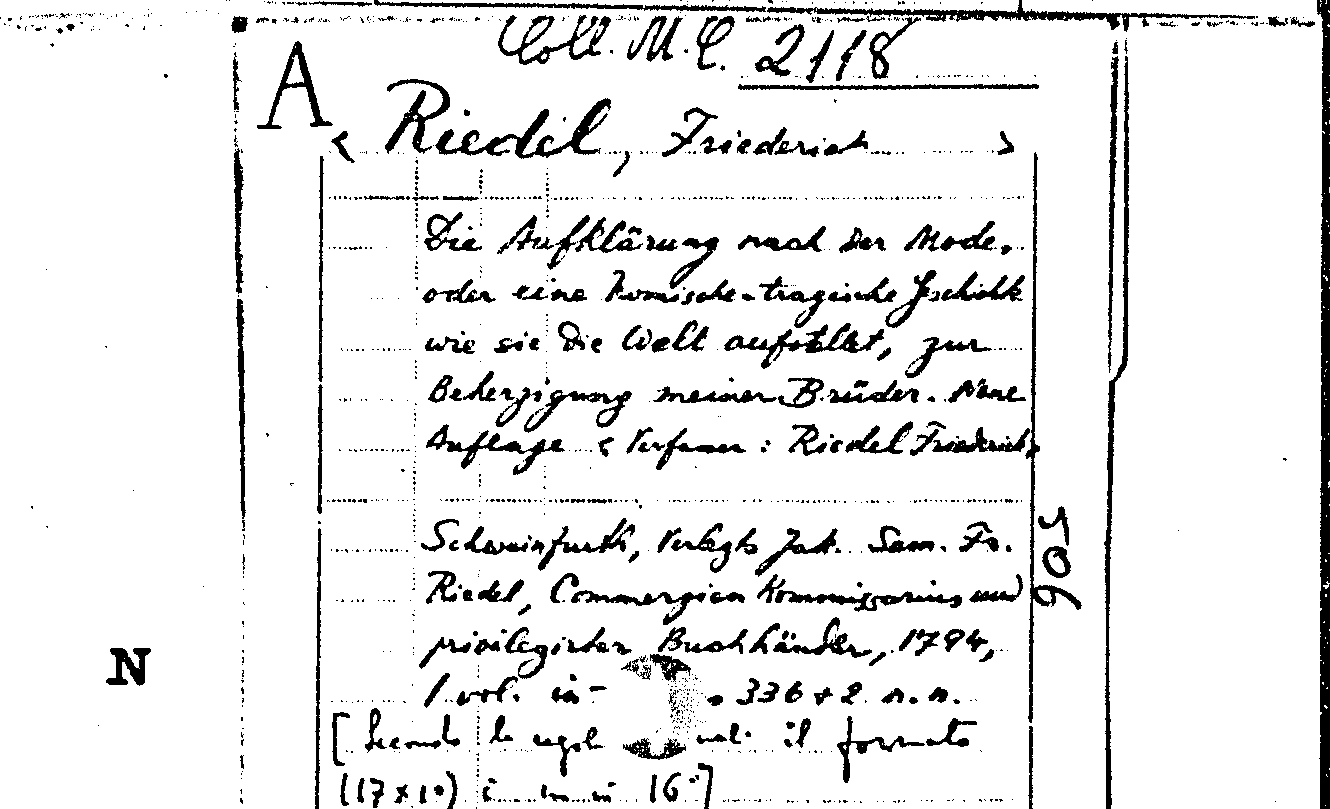 Coll. M. C. 2118
A
< Riedel, Friederich >
Die Aufklärung nach der Mode,
oder eine komische-tragische Geschichte
wie sie die Welt aufstellet, zur
Beherzigung meiner Brüder. Neue
Auflage < Verfasser : Riedel Friederich>
Schweinfurth, Verlegts Joh. Sam. Fr.
Riedel, Commerzien Kommissarius und
privilegirter Buchhändler, 1794,
1 vol. in- 336 + 2 n. n.
[Secondo le regole il formato
(17 x in 16°]
905
N